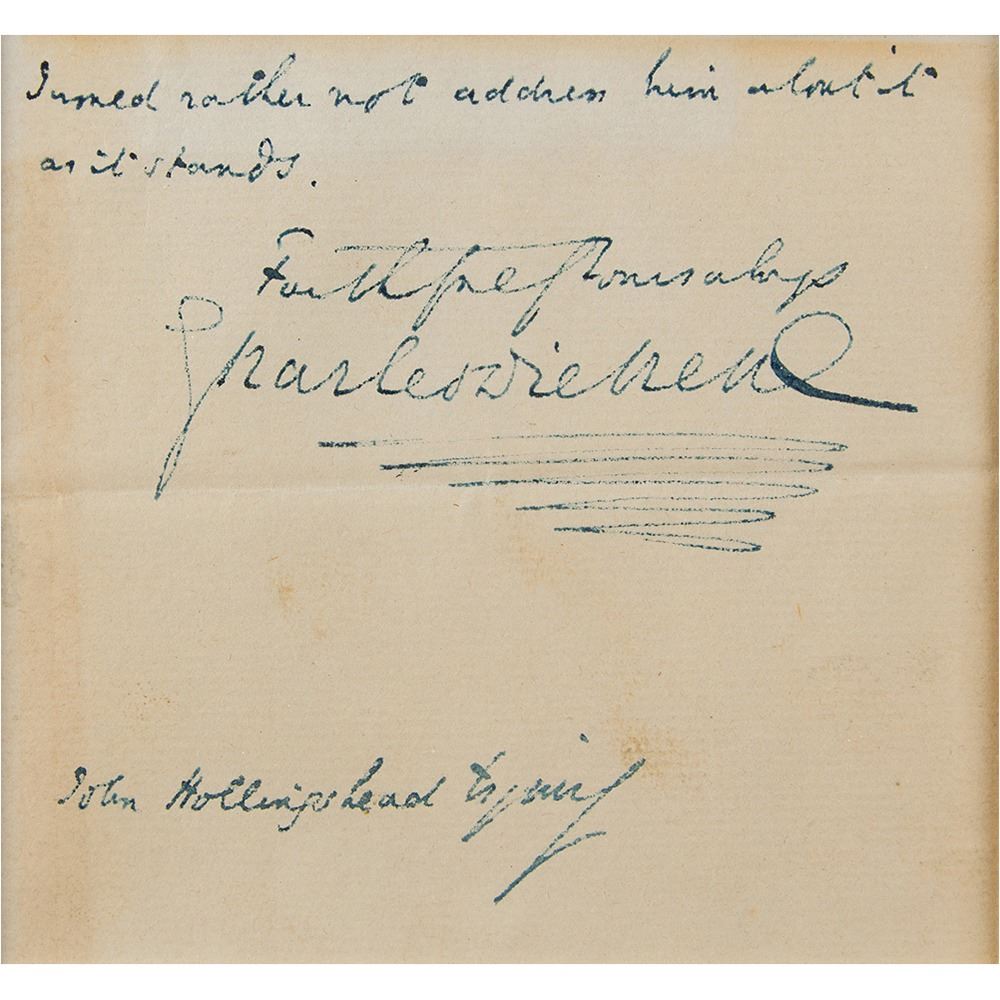 I would rather not address him about it
as it stands.
Faithfully Yours always
Charles Dickens
John Hollingshead Esquire